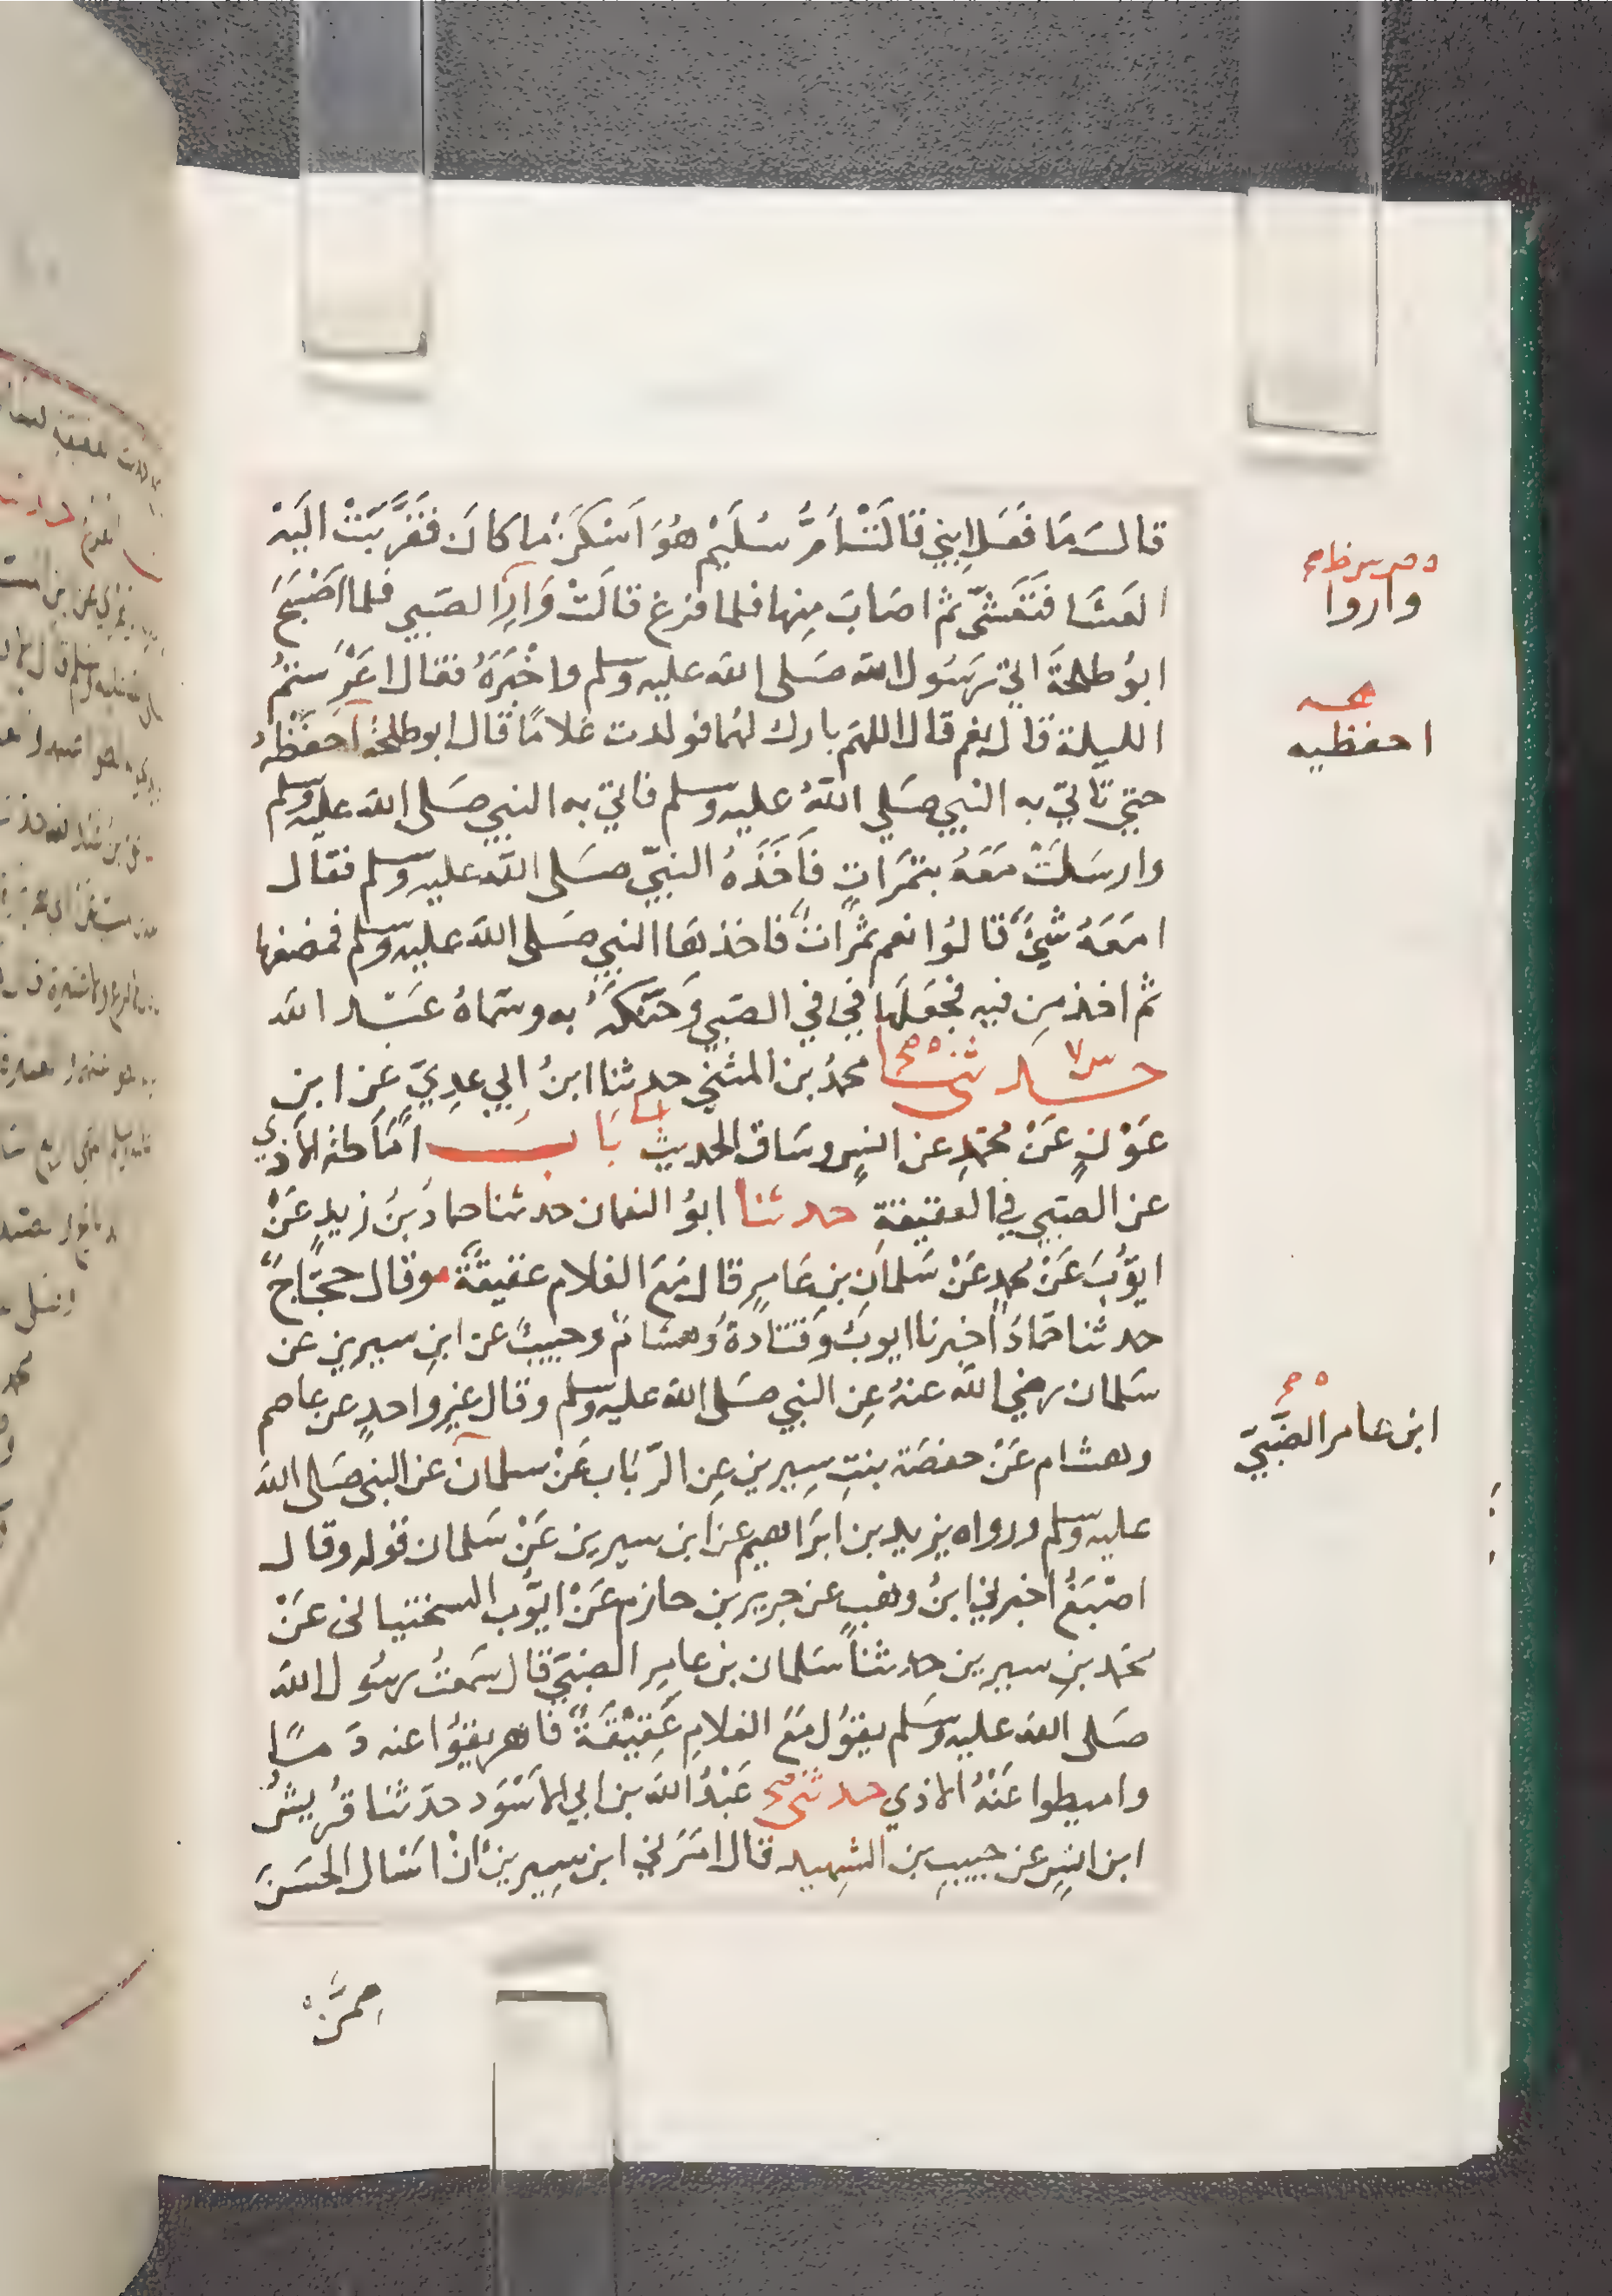 قالت مَا فَعَل ابني قالَتْ اُمُّ سُلَيْم هُوَ اَسْكَنُ ما كانَ فَقَرَّبَتْ اليَهْ
العَشا فَتَعَشّى ثم اصَابَ مِنها فلما فرغ قالَتْ وَارِ الصَبي فلما اَصْبَحَ
ابوُ طلحَةَ اتي رَسُول الله صَلى الله عليه وسلم واخْبَرَهُ فقال اَعْرَستمُ
الليلة قال نعم قال اللهم بارك لهُما فولدت غلامًا قال ابو طلحة احفَظْهُ
حتي تاتيَ به النبي صَلي اللهُ عليه وسلم فاتيَ به النبي صَلى الله عليه وسلم
وارسَلَتْ مَعَهُ بتمَرَاتٍ فَاَخَذَهُ النبيّ صَلى الله عليه وسلم فقال
امَعَهُ شيْءٌ قالوُا نعم تمَراتٌ فاخذهَا النبي صَلى الله عليه وسلم فمضغها
ثم اخذ مِن فيه فجعَلَها في في الصَبي وَحَنّكَهُ به وسَمّاهُ عَبْد الله
حدثنا محمدُ بن المثني حدثنا ابنُ ابي عدِيّ عَن ابنِ
عَوْنٍ عَنْ محمّدٍ عن انسٍ وساق الحديث بَاب امَاطة الاذي
عن الصَبي في العقيقةِ حدثنا ابوُ النعمان حدثنا حمادُ بنُ زيدٍ عَنْ
ايوُّبَ عَنْ محمدٍ عَنْ سَلمانِ بنِ عَامِرٍ قال مَعَ الغلام عقيقَةٌ وقال حجّاجٌ
حدثنا حَمّادٌ اخبرنا ايوبُ وَقتَادةُ وَهشامٌ وحبيبٌ عن ابنِ سيرين عن
سَلمان رضي الله عنهُ عنِ النبي صَلى الله عليه وسلم وقال غيرُ واحدٍ عن عاصم
وهشام عَنْ حفصَة بنتِ سِيرين عنِ الرّبَاب عَنْ سلمان عن النبي صَلى الله
عليه وسلم ورواه يزيد بن ابرَاهيم عن ابن سيرين عَنْ سَلمان قوله وقال
اصْبَغُ اخبرني ابنُ وهْبٍ عن جرير بن حازم عَنْ ايوُّب السختياني عَنْ
محمّد بن سيرين حدثنا سَلمان بن عامِر الضبيّ قال سَمعْتُ رسُول الله
صَلى الله عليه وسَلم يقوُل مَعَ الغلامِ عَقيْقَةٌ فاهريقوُا عنه دَمًا
واميطوا عَنْهُ الاذي حدثني عَبْدُ الله بن ابي الاَسْوَد حدّثنا قُرَيشُ
ابن انسٍ عن حبيبِ بن الشهيد قال امَرَني ابن سِيرين انْ اسْال الحَسَنَ
مِمَّنْ
واروا
احفظيه
ابن عامر الضَّبيّ